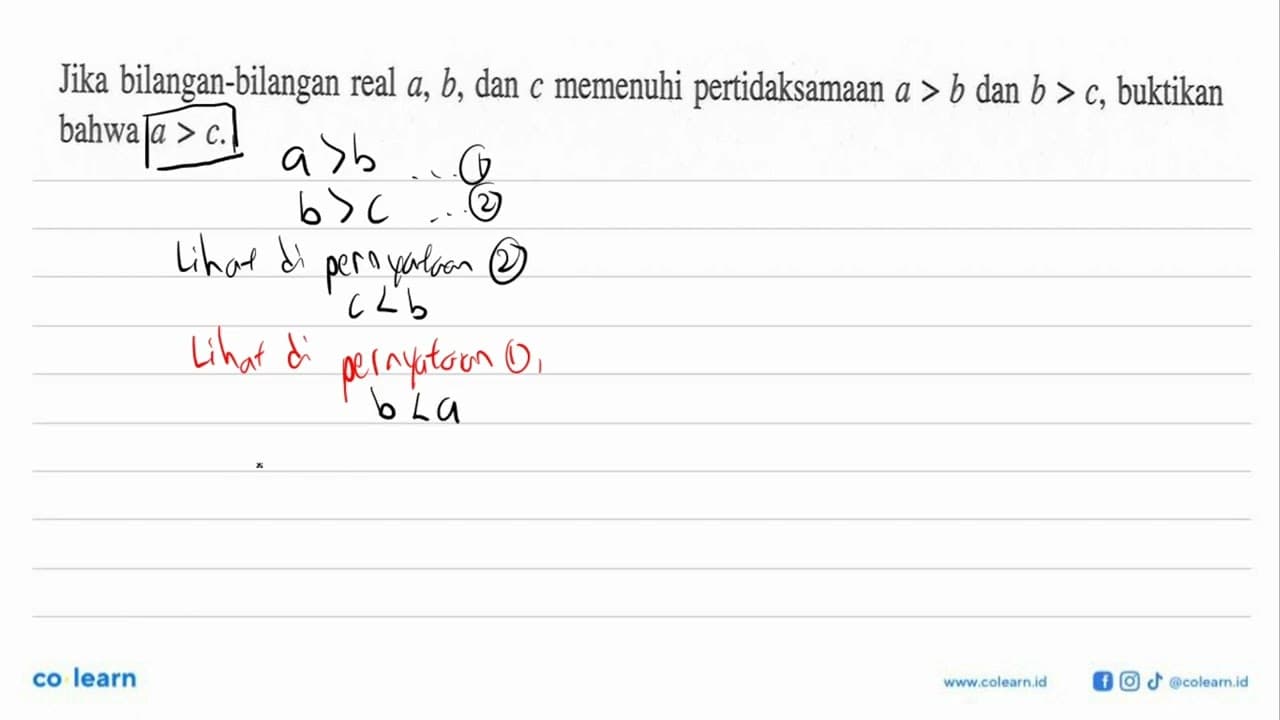 Jika bilangan-bilangan real a, b, dan c memenuhi pertidaksamaan a > b dan b > c, buktikan
bahwa a > c.
a > b ... ①
b > c ... ②
Lihat di pernyataan ②
c < b
Lihat di pernyataan ①,
b < a
co learn
www.colearn.id
@colearn.id